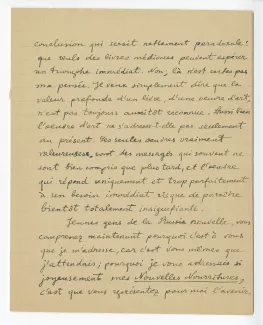 conclusion qui serait nettement paradoxale :
que seuls des livres médiocres peuvent espérer
un triomphe immédiat. Non, là n'est certes pas
ma pensée. Je veux simplement dire que la
valeur profonde d'un livre, d'une œuvre d'art,
n'est pas toujours aussitôt reconnue. Aussi bien
l'œuvre d'art ne s'adresse-t-elle pas seulement
au présent. Les seules œuvres vraiment
valeureuses sont des messages qui souvent ne
sont bien compris que plus tard, et l'œuvre
qui répond uniquement et trop parfaitement
à un besoin immédiat risque de paraître
bientôt totalement insignifiante.
Jeunes gens de la Russie nouvelle, vous
comprenez maintenant pourquoi c'est à vous
que je m'adresse, car c'est vous mêmes que
j'attendais; pourquoi je vous adressais si
joyeusement mes Nouvelles Nourritures;
c'est que vous représentez pour moi l'avenir.